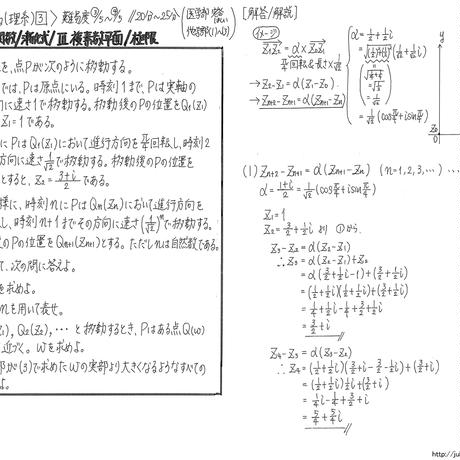 (理系) 3 > 難易度
複素数平面/極限
[解答/解説]
を、点Pが次のように移動する。
では、Pは原点にいる。時刻1まで、Pは実軸の
向に速さ1で移動する。移動後のPの位置をQ₁(Z₁)
Z₁=1である。
にPはQ₁(Z₁)において進行方向をπ/4回転し、時刻2
方向に速さ1/√2で移動する。移動後のPの位置を
とすると、Z₂=(3+i)/2である。
様に、時刻nにPはQn(Zn)において進行方向を
し、時刻n+1までその方向に速さ(1/√2)ⁿで移動する。
の位置をQn+1(Zn+1)とする。ただしnは自然数である。
て、次の問に答えよ。
を求めよ。
nを用いて表せ。
Q₂(Z₂), … と移動するとき、Pはある点Q(w)
近づく。wを求めよ。
部が(3)で求めたwの実部より大きくなるようなすべての
よ。
イメージ
Z₂Z₃ = α × Z₁Z₂
π/4回転&長さ×1/√2
→Z₃-Z₂=α(Z₂-Z₁)
→Zn+2-Zn+1=α(Zn+1-Zn)
α=1/2+1/2i
=1/√2(cosπ/4+isinπ/4)
y
(1) Zn+2-Zn+1=α(Zn+1-Zn) (n=1,2,3,…)
α=(1+i)/2=1/√2(cosπ/4+isinπ/4)
Z₁=1
Z₂=3/2+1/2i より ①から.
Z₃-Z₂=α(Z₂-Z₁)
∴Z₃=α(Z₂-Z₁)+Z₂
=α(3/2+1/2i-1)+(3/2+1/2i)
=(1/2+1/2i)(1/2+1/2i)+(3/2+1/2i)
=1/4+1/2i-1/4+3/2+1/2i
=3/2+i
Z₄-Z₃=α(Z₃-Z₂)
∴Z₄=(1/2+1/2i)(3/2+i-3/2-1/2i)+(3/2+i)
=(1/2+1/2i)1/2i+(3/2+i)
=1/4i-1/4+3/2+i
=5/4+5/4i